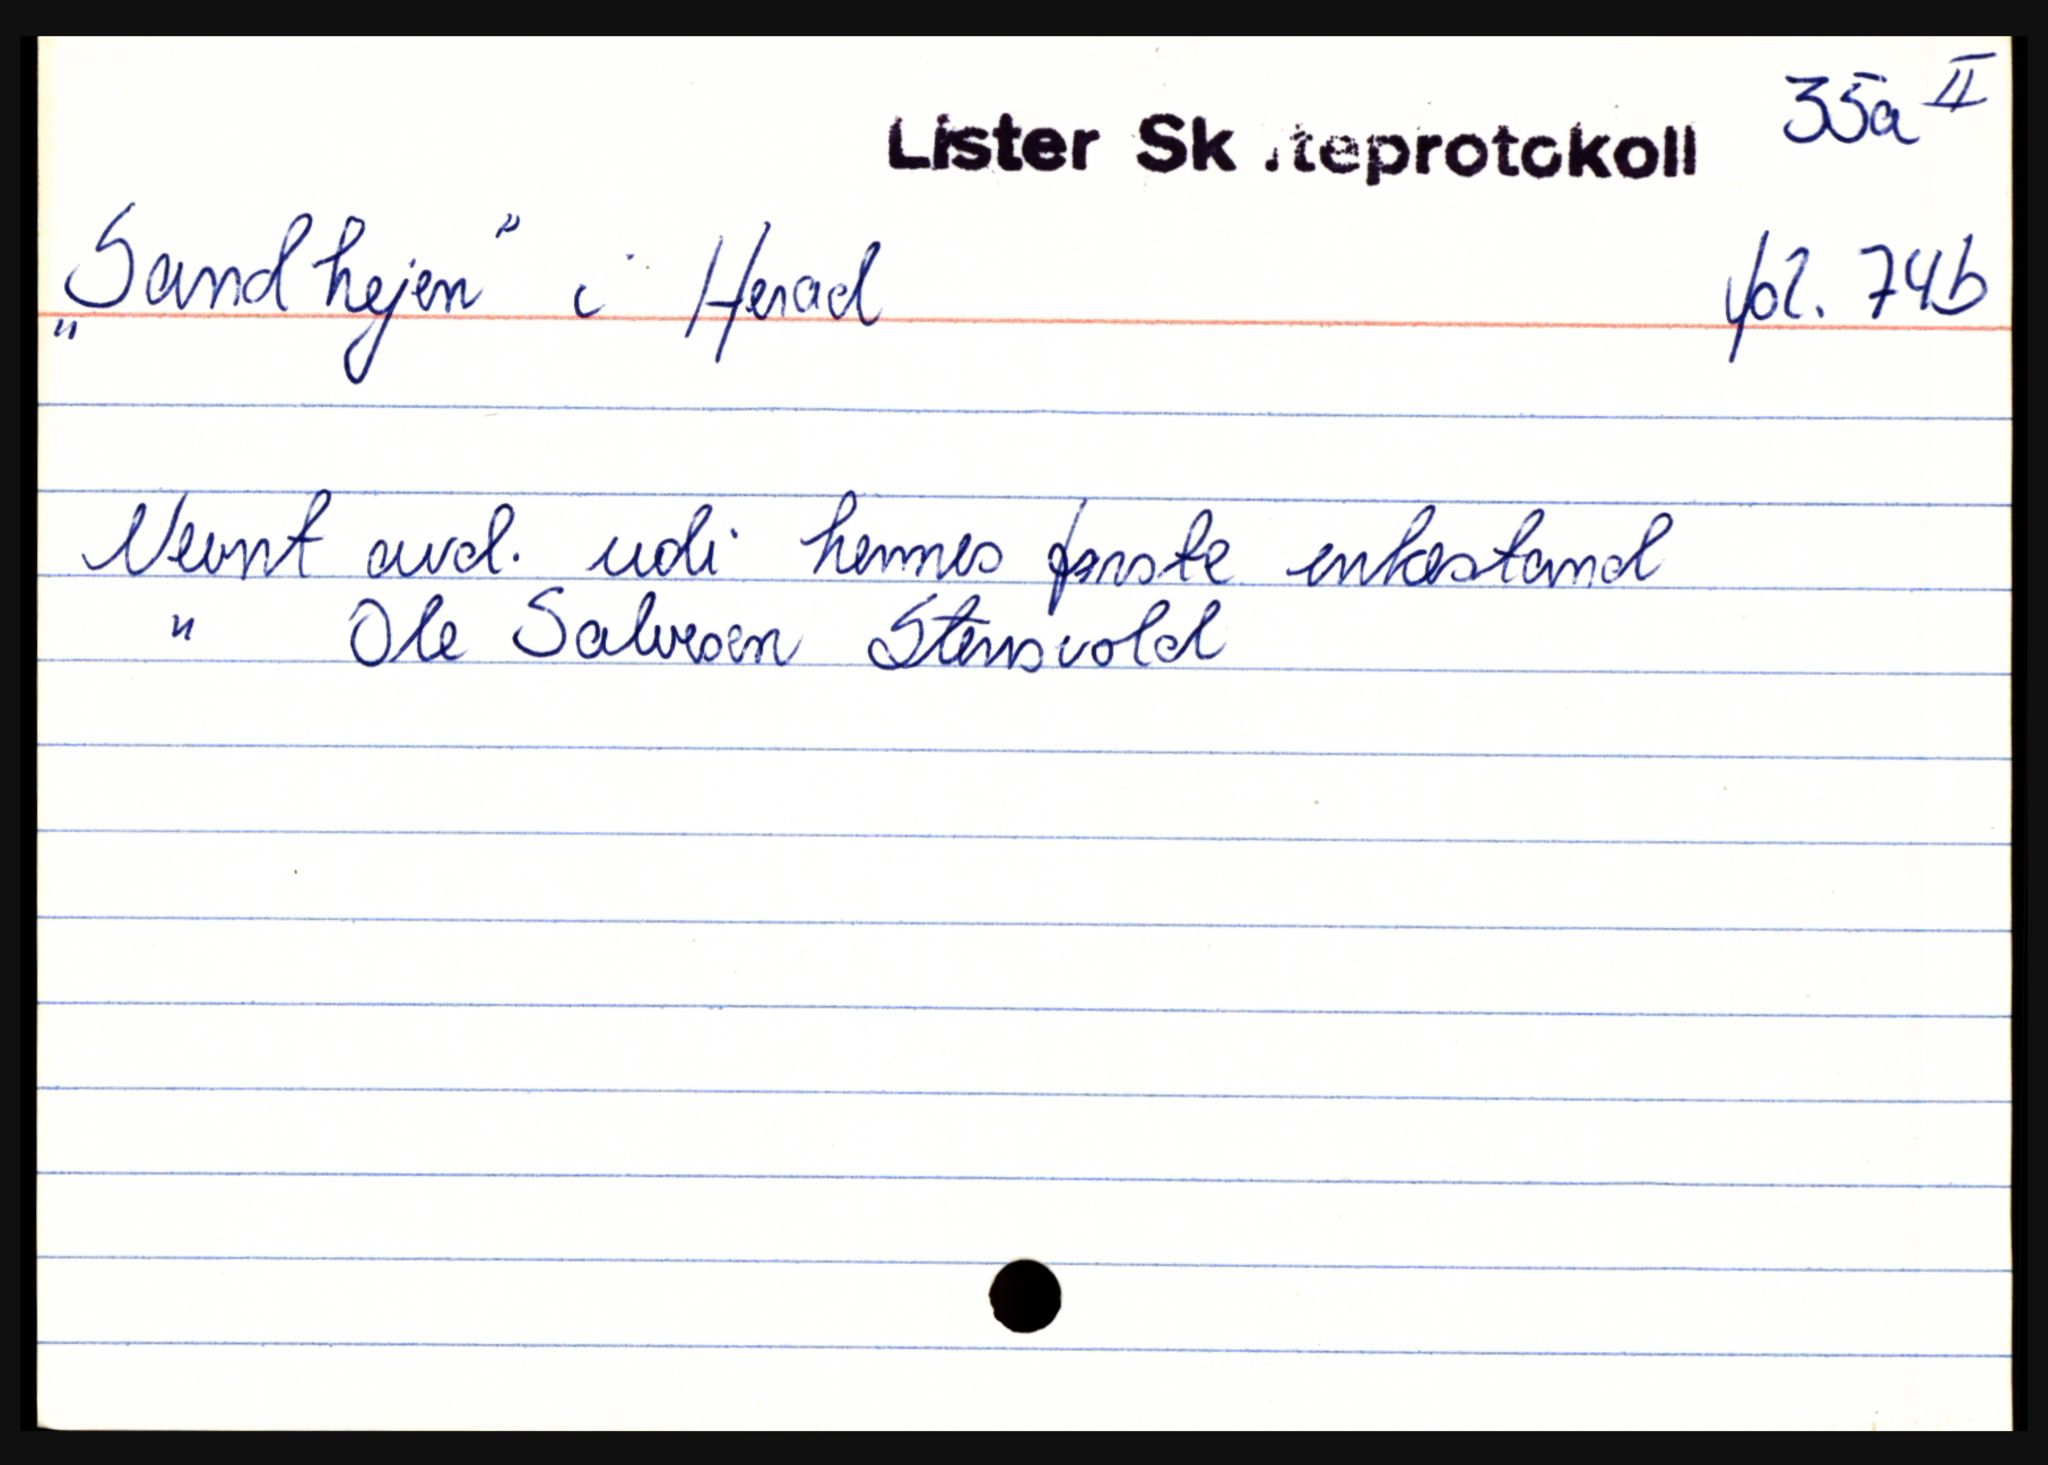 35a II
Lister Sk.teprotokoll
„Sandhejen" i Herad fol. 74b
Nevnt avd. udi hennes første enkestand
" Ole Salvesen Stensvold